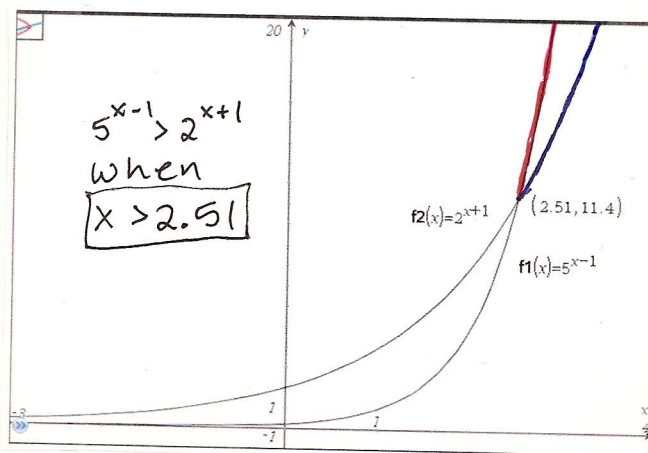 20 y
5^{x-1} > 2^{x+1}
when
x > 2.51
f2(x)=2^{x+1}
(2.51, 11.4)
f1(x)=5^{x-1}
-3
1
1
x
-1